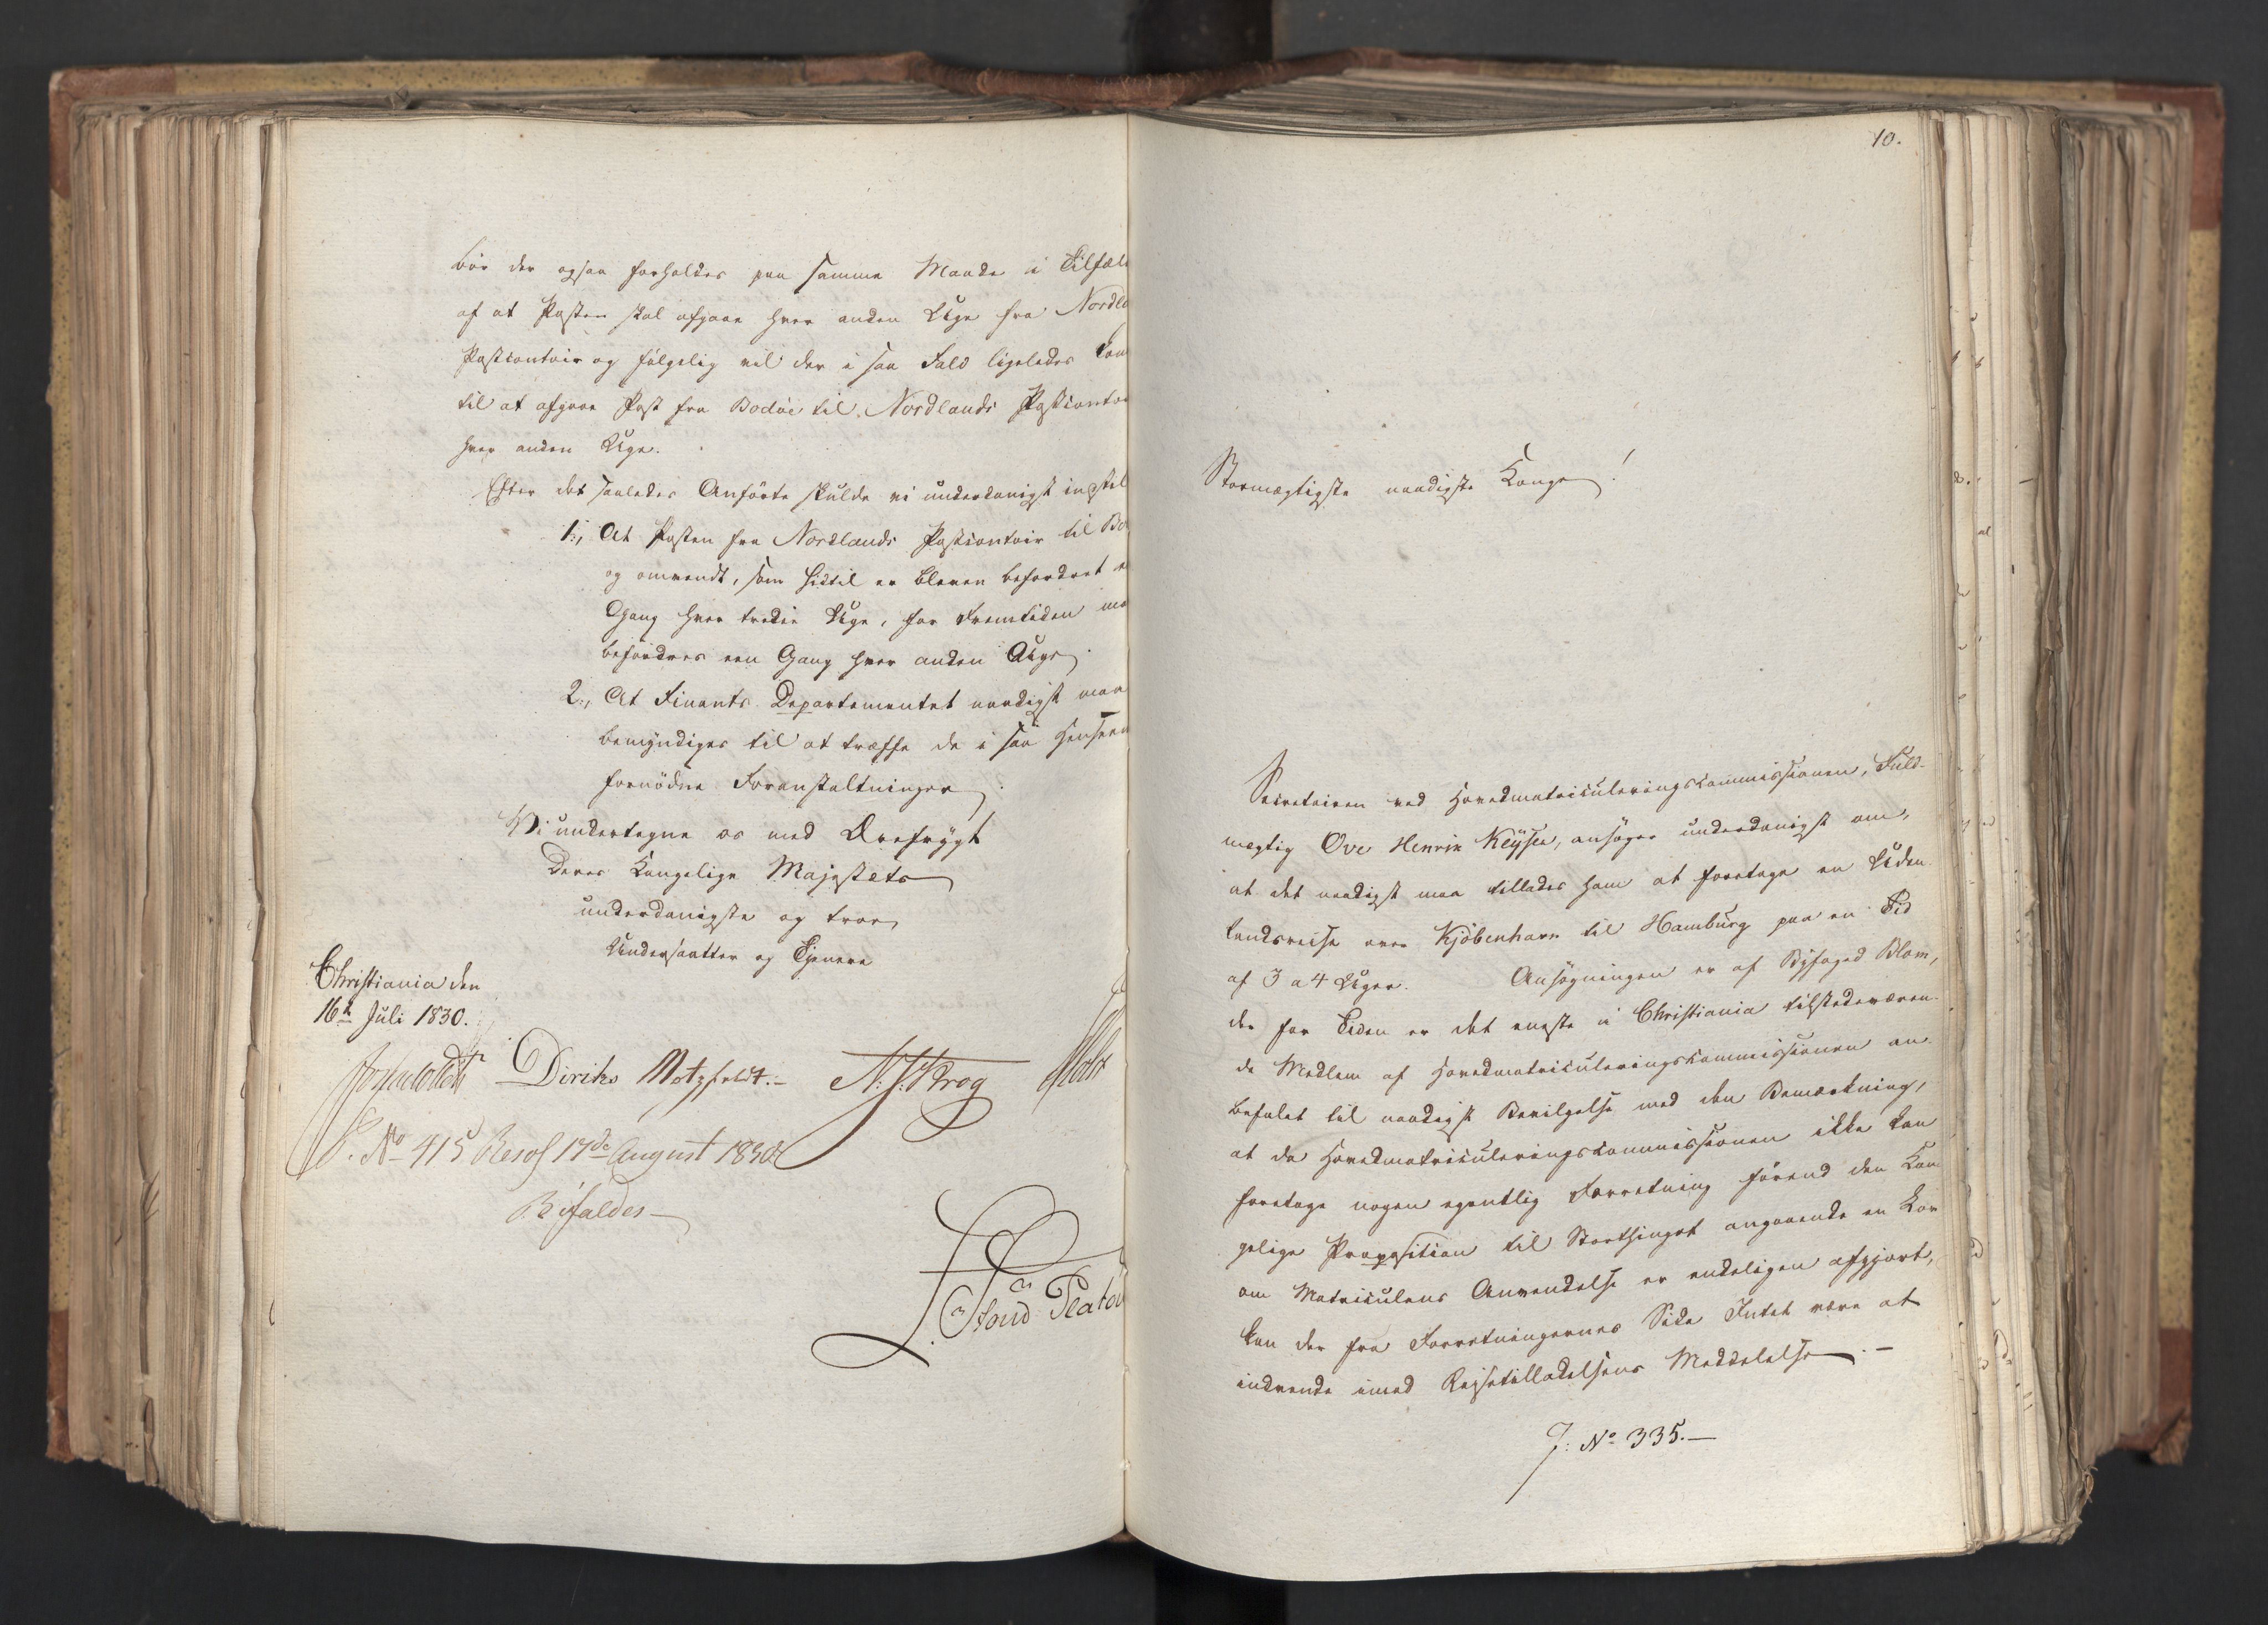 bör der ogsaa forholdes paa samme Maade i Tilfæl
af at Posten skal afgaae hver anden Uge fra Nordla
Postcontoir og fölgelig vil der i saa Fald ligeledes kom
til at afgaae Post fra Bodöe til Nordlands Postconto
hver anden Uge.
Efter det saaledes Anförte skulde vi underdanigst instil
1., At Posten fra Nordlands Postcontoir til Bo
og omvendt, som hidtil er bleven befordret e
Gang hver tredie Uge, for Fremtiden ma
befordres een Gang hver anden Uge.
2., At Finants Departementet naadigst maa
bemyndiges til at træffe de i saa Henseen
fornödne Foranstaltninger.
Vi undertegne os med Ærefrygt
Deres Kongelige Majestæts
underdanigste og troe
Undersaatter og Tjenere
Christiania den
16de Juli 1830.
Diriks Motzfeldt.- Krog Holst
No 415 Resol 17de August 1830
Bifaldes
10.
Stormægtigste naadigste Konge!
Secretairen ved Hovedmatriculeringscommissionen, Fuld-
mægtig Ove Henrik Keyser, ansöger underdanigst om,
at det naadigst maa tillades ham at foretage en Uden-
landsreise over Kjöbenhavn til Hamburg paa en Tid
af 3 a 4 Uger. Ansögningen er af Byfoged Blom,
der for Tiden er det eneste i Christiania tilstedeværen-
de Medlem af Hovedmatriculeringscommissionen an-
befalet til naadigst Bevilgelse med den Bemærkning,
at da Hovedmatriculeringscommissionen ikke kan
foretage nogen egentlig Forretning förend den Kon-
gelige Proposition til Storthinget angaaende en Lov
om Matriculens Anvendelse er endeligen afgjort,
kan der fra Forretningernes Side Intet være at
indvende imod Reisetilladelsens Meddelelse.-
J: No 335.-